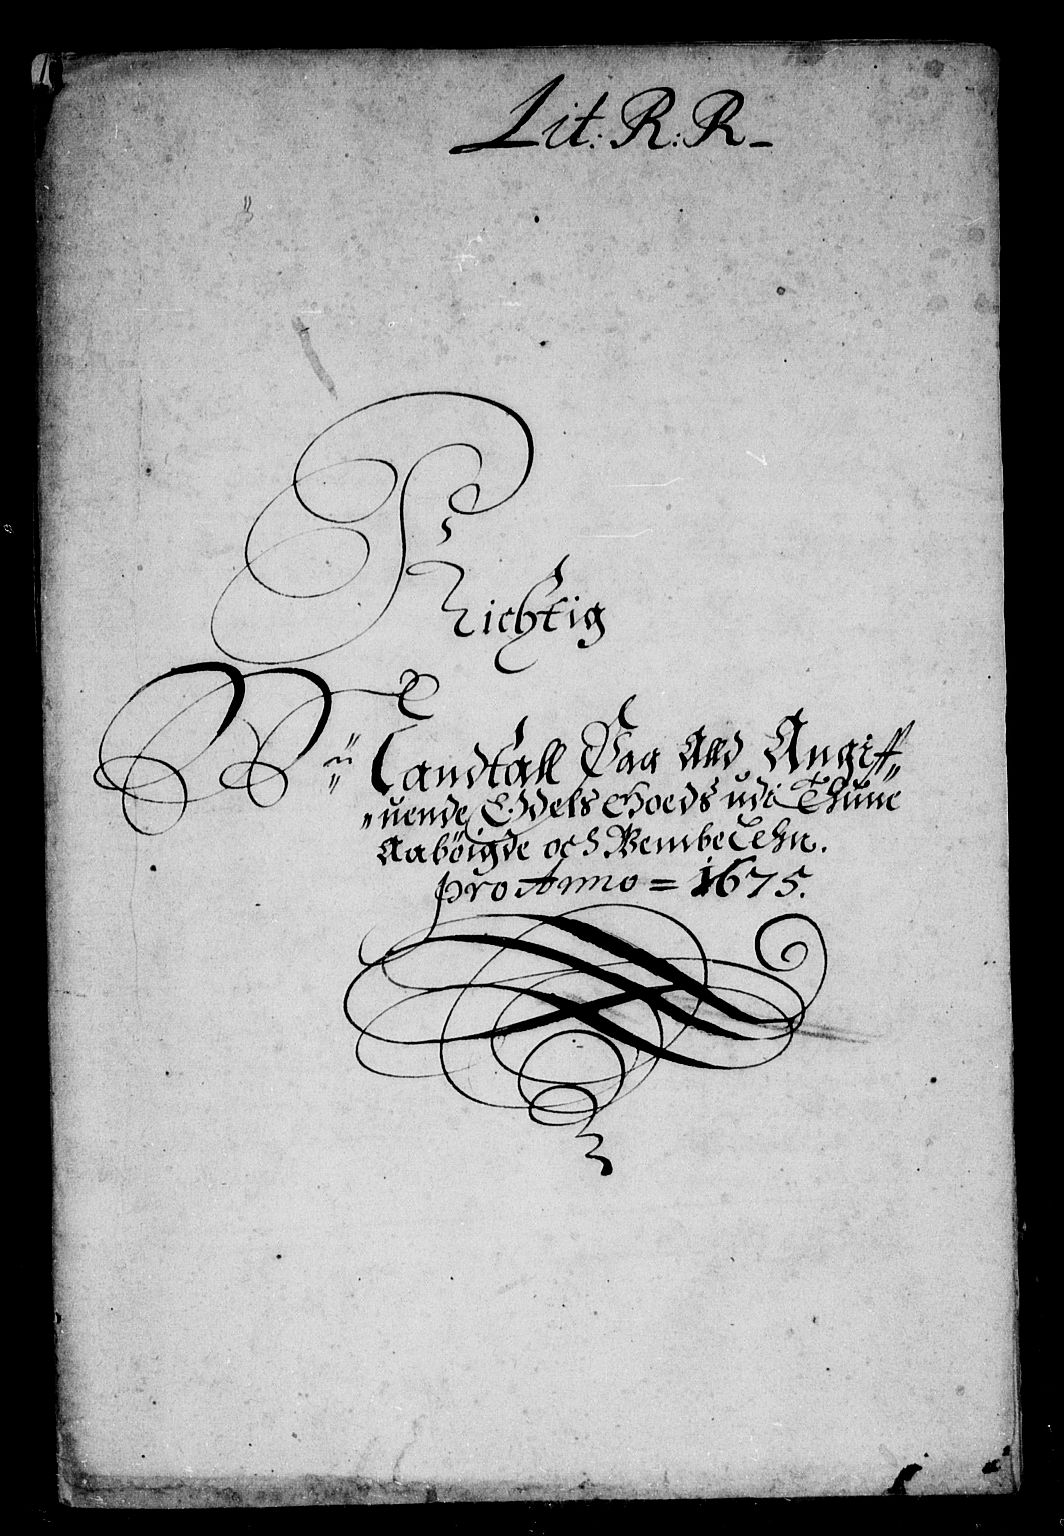 Lit: R: R-
Richtig
Mandtall Paa Ald Angiff-
uende Edels Goeds udi Thune
Aabøigde och Wembe Lehn.
pro Anno = 1675.